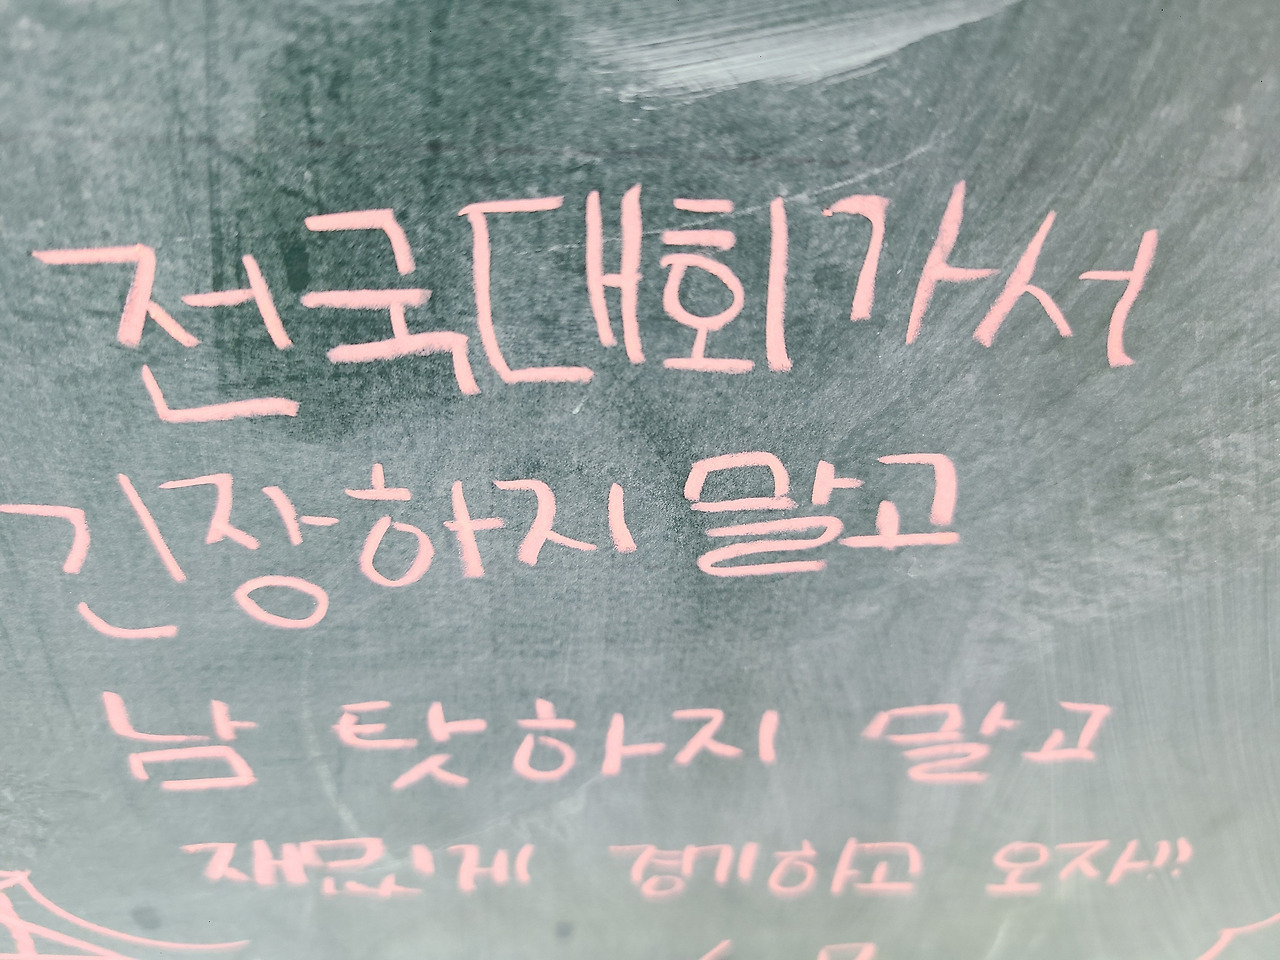 전국대회가서
긴장하지 말고
남 탓하지 말고
재밌게 경기하고 오자!!